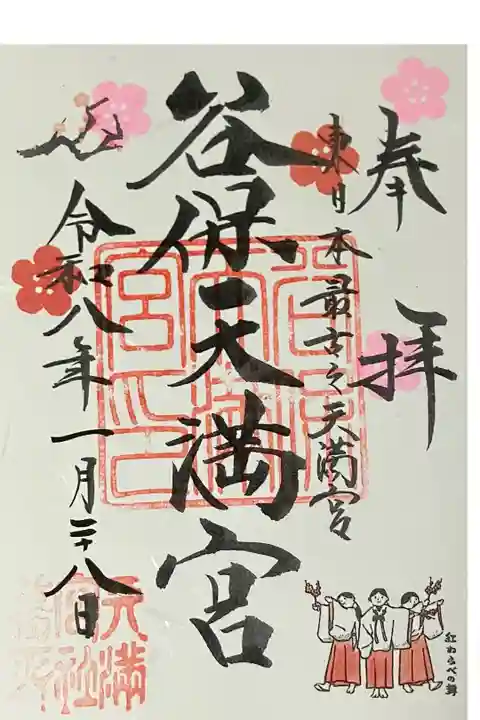 奉拝
東日本最古之天満宮
谷保天満宮
令和八年一月二十八日
紅わらべの舞
天満宮社